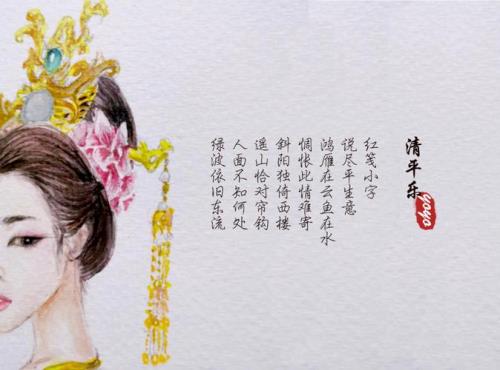 清平乐
yoyo
红笺小字
说尽平生意
鸿雁在云鱼在水
惆怅此情难寄
斜阳独倚西楼
遥山恰对帘钩
人面不知何处
绿波依旧东流